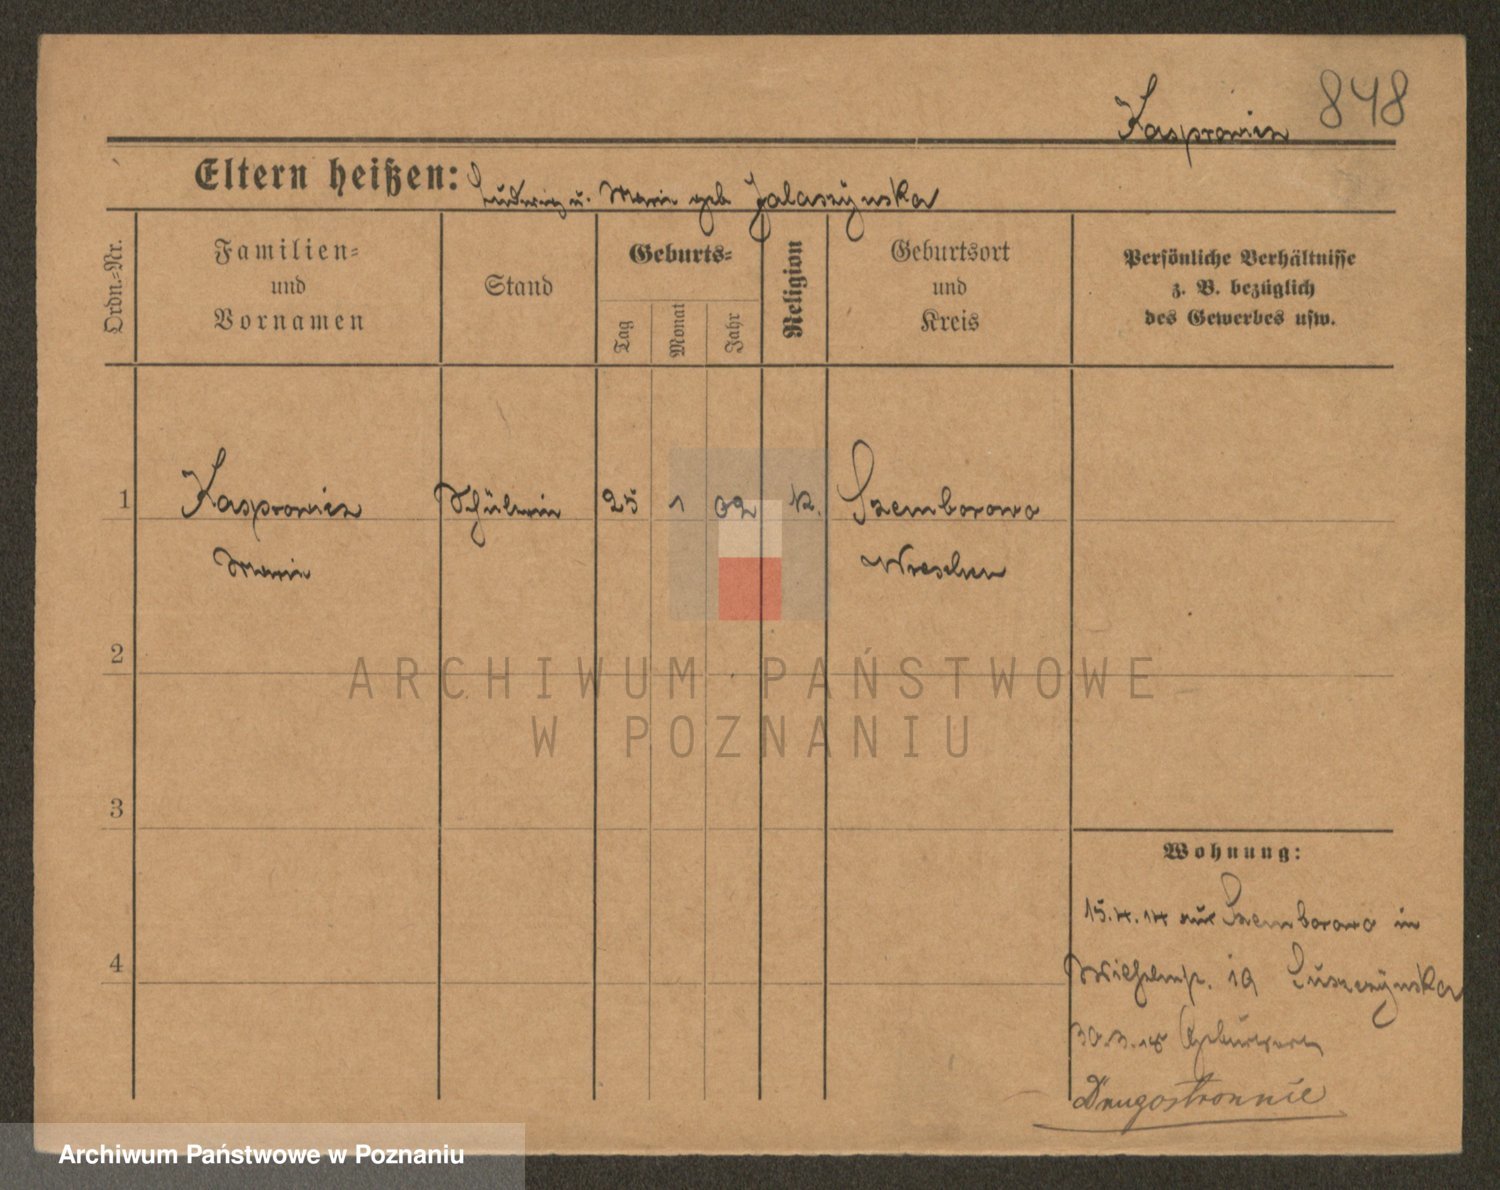 848
Kasprowicz
Eltern heißen: Ludwig u. Marie geb Jalaszÿnska
Ordn.=Nr.
Familien=
und
Vornamen
Stand
Geburts=
Tag
Monat
Jahr
Religion
Geburtsort
und
Kreis
Persönliche Verhältnisse
z. B. bezüglich
des Gewerbes usw.
1 Kasprowicz Schülerin 25 1 02 K. Szemborowo
Marie Wreschen
2
3
4
Wohnung:
15.4.14 aus Szemborowo in
Wilhelmpl. 19 Luszczÿnska
30.3.15 Geburtsort
Drugostronnie
ARCHIWUM PAŃSTWOWE
W POZNANIU
Archiwum Państwowe w Poznaniu